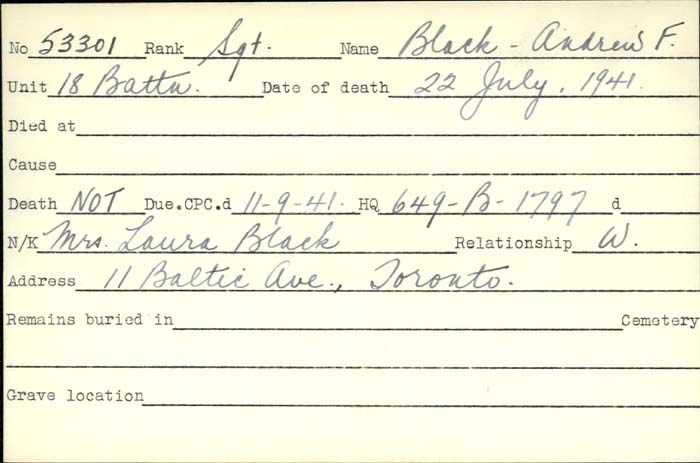 No 53301 Rank Sgt. Name Black - Andrew F.
Unit 18 Battn. Date of death 22 July, 1941.
Died at
Cause
Death NOT Due.CPC.d 11-9-41. HQ 649-B-1797 d
N/K Mrs. Laura Black Relationship W.
Address 11 Baltic Ave., Toronto.
Remains buried in Cemetery
Grave location